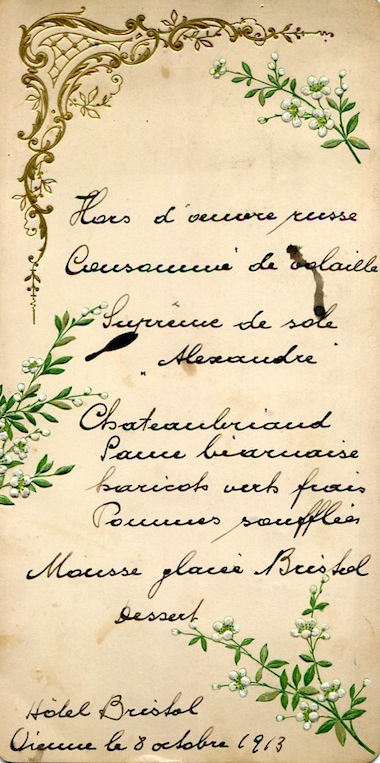 Hors d'oeuvre russe
Consommé de volaille
Suprême de sole
"Alexandre"
Chateaubriand
Sauce béarnaise
haricots verts frais
Pommes soufflées
Mousse glacée Bristol
Dessert
Hôtel Bristol
Vienne le 8 octobre 1913